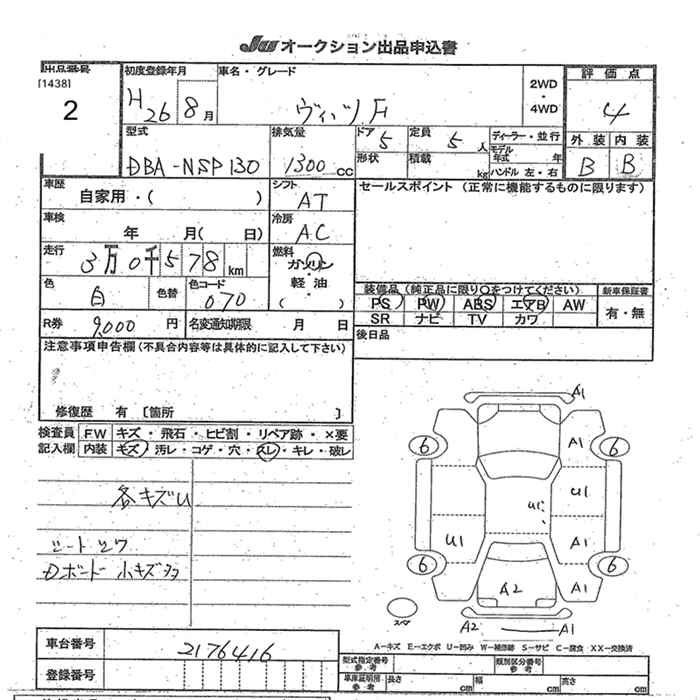 JW オークション出品申込書
出品番号
[1438]
2
初度登録年月
H26 8月
車名・グレード
ヴィッツ F
2WD
・
4WD
評価点
4
型式
DBA-NSP130
排気量
1300 CC
ドア 5
定員 5 人
ディーラー・並行
形状
積載 kg
モデル年式 年
ハンドル 左・右
外装 内装
B B
車歴
自家用・( )
シフト
AT
セールスポイント (正常に機能するものに限ります)
車検
年 月( 日)
冷房
AC
走行
3万0千578km
燃料
ガソリン
・
軽油
色
白
色替
色コード
070
装備品 (純正品に限り○をつけてください)
PS PW ABS エアB AW
SR ナビ TV カワ
新車保証書
有・無
R券 9,000 円
名変通知期限 月 日
後日品
注意事項申告欄(不具合内容等は具体的に記入して下さい)
修復歴 有 〔箇所 〕
検査員 FW キズ・飛石・ヒビ割・リペア跡・×要
記入欄 内装 キズ・汚レ・コゲ・穴・スレ・キレ・破レ
各キズU
シートシワ
Dボード 小キズ
A1
6 A1 6
U1
U1
U1 A1
6 A1 6
A2
スペア
A2 A1
A-キズ E-エクボ U-凹み W-補修跡 S-サビ C-腐食 XX-交換済
車台番号 2176416
登録番号
型式指定番号 参考
類別区分番号 参考
車庫証明用 参考
長さ cm 幅 cm 高さ cm